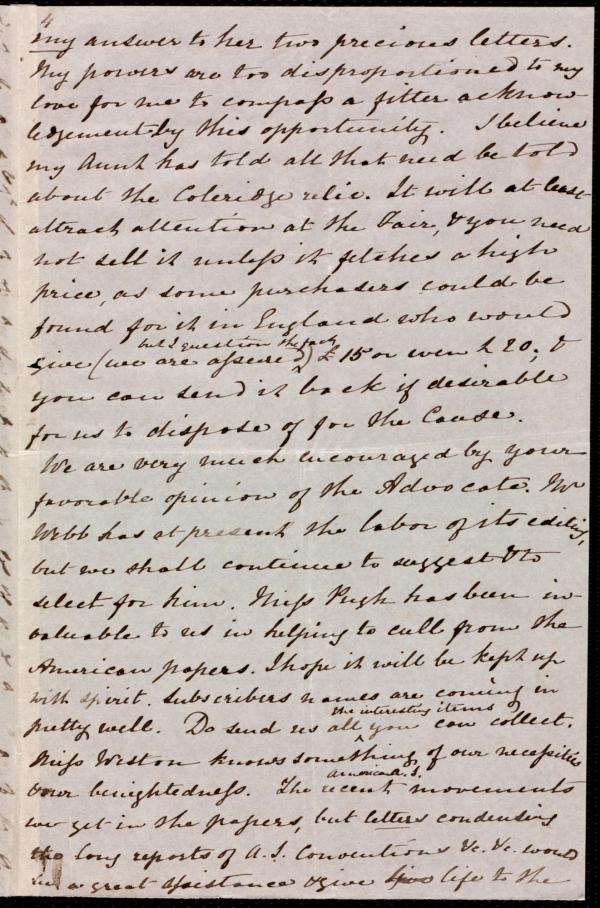 4
my answer to her two precious letters.
My powers are too disproportioned to my
love for me to compass a fitter acknow-
ledgement by this opportunity. I believe
my Aunt has told all that need be told
about the Coleridge relic. It will at least
attract attention at the Fair, & you need
not sell it unless it fetches a high
price, as some purchasers could be
found for it in England who would
but I question the fact
give (we are assured) £15 or even £20; &
you can send it back if desirable
for us to dispose of for the Cause.
We are very much encouraged by your
favorable opinion of the Advocate. Mr
Webb has at present the labor of its editing,
but we shall continue to suggest & to
select for him. Miss Pugh has been in-
valuable to us in helping to cull from the
American papers. I hope it will be kept up
with spirit. Subscribers names are coming in
the interesting items
pretty well. Do send us all you can collect.
Miss Weston knows something of our necessities
& our benightedness. The recent movements
we get in the papers, but letters condensing
the long reports of A.S. Conventions &c. &c. would
be a great assistance & give life to the